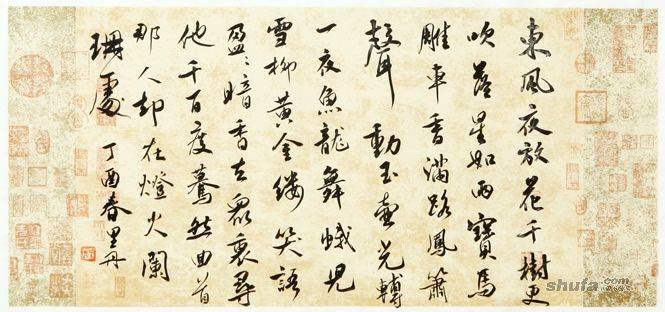 東風夜放花千樹更
吹落星如雨寶馬
雕車香滿路鳳簫
聲動玉壺光轉
一夜魚龍舞蛾兒
雪柳黃金縷笑語
盈〻暗香去眾裏尋
他千百度驀然回首
那人却在燈火闌
珊處
丁酉春里丹
shufa.com